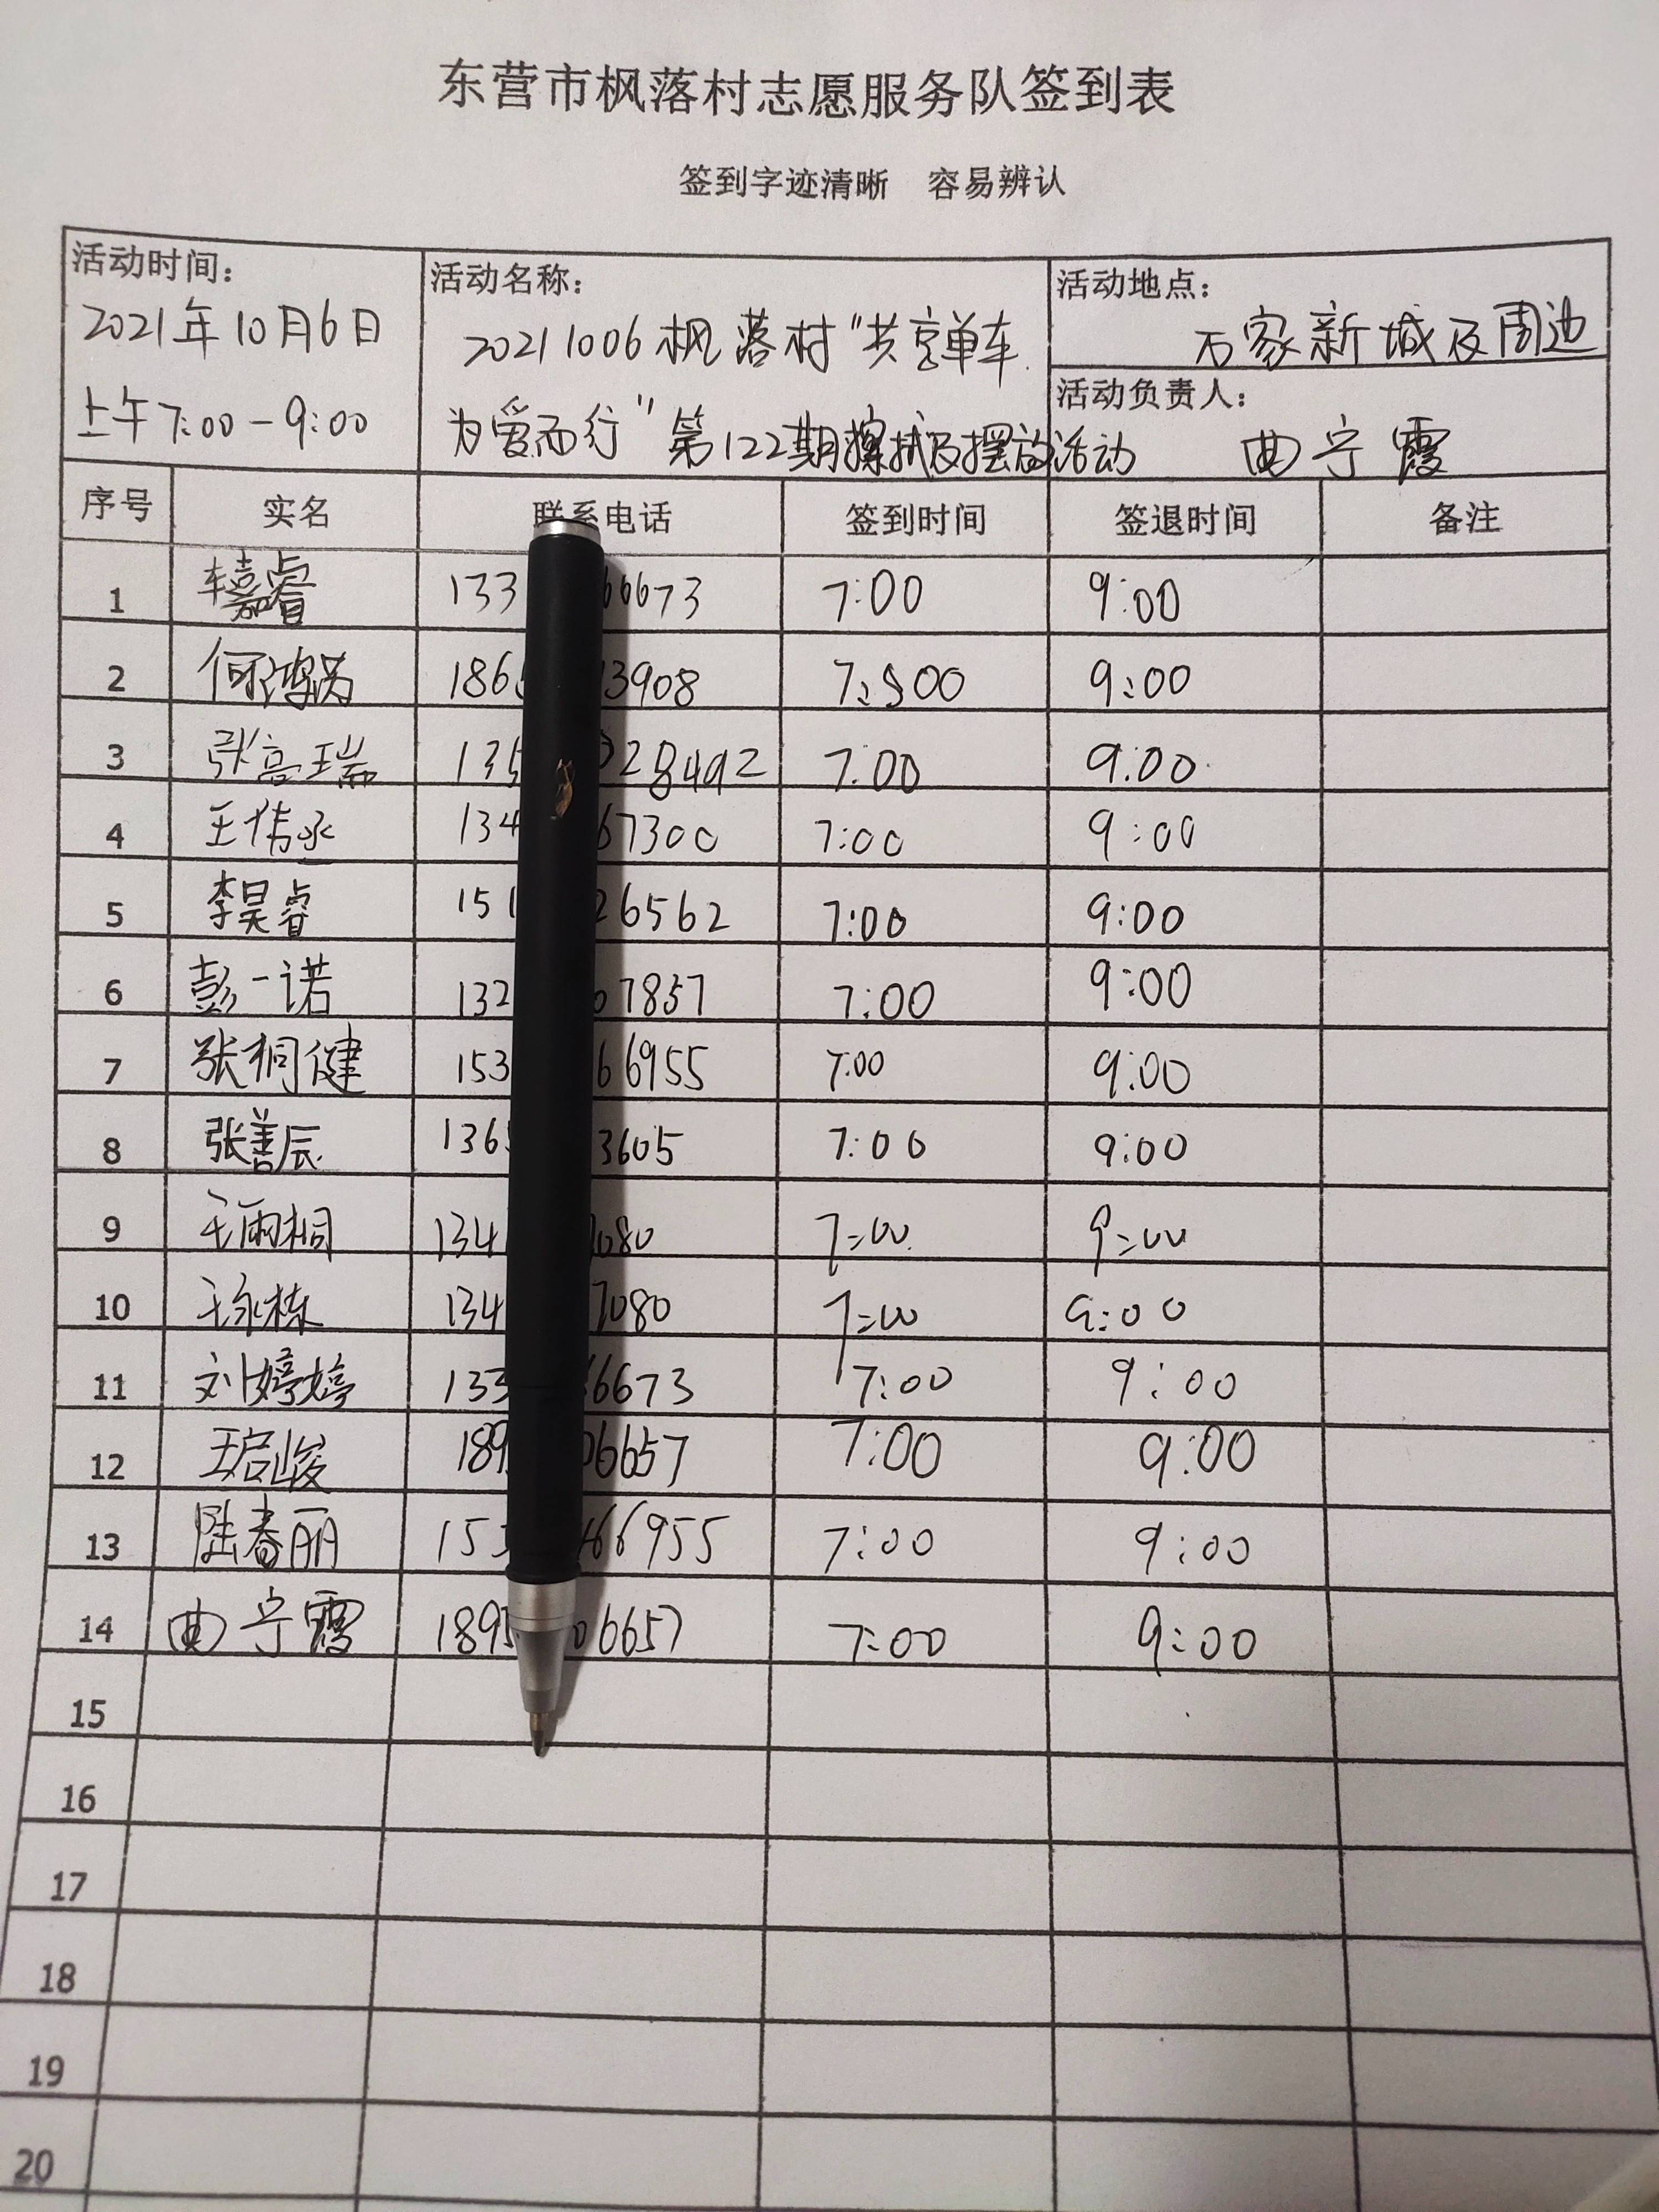 东营市枫落村志愿服务队签到表
签到字迹清晰 容易辨认
活动时间：
2021年10月6日
上午7:00-9:00
活动名称：
20211006枫落村"共享单车
为爱而行"第122期擦拭及摆放活动
活动地点：
万家新城及周边
活动负责人：
曲宁霞
序号 实名 联系电话 签到时间 签退时间 备注
1 车嘉睿 133 66673 7:00 9:00
2 186 13908 7:00 9:00
3 张高瑞 135 228492 7:00 9:00
4 134 67300 7:00 9:00
5 李昊睿 151 26562 7:00 9:00
6 彭一诺 132 07857 7:00 9:00
7 张桐健 153 66955 7:00 9:00
8 张善辰 136 3605 7:00 9:00
9 王雨桐 134 080 7:00 9:00
10 王永栋 134 7080 7:00 9:00
11 刘婷婷 133 6673 7:00 9:00
12 王启峻 189 06657 7:00 9:00
13 陆春丽 153 66955 7:00 9:00
14 曲宁霞 1895 06657 7:00 9:00
15
16
17
18
19
20